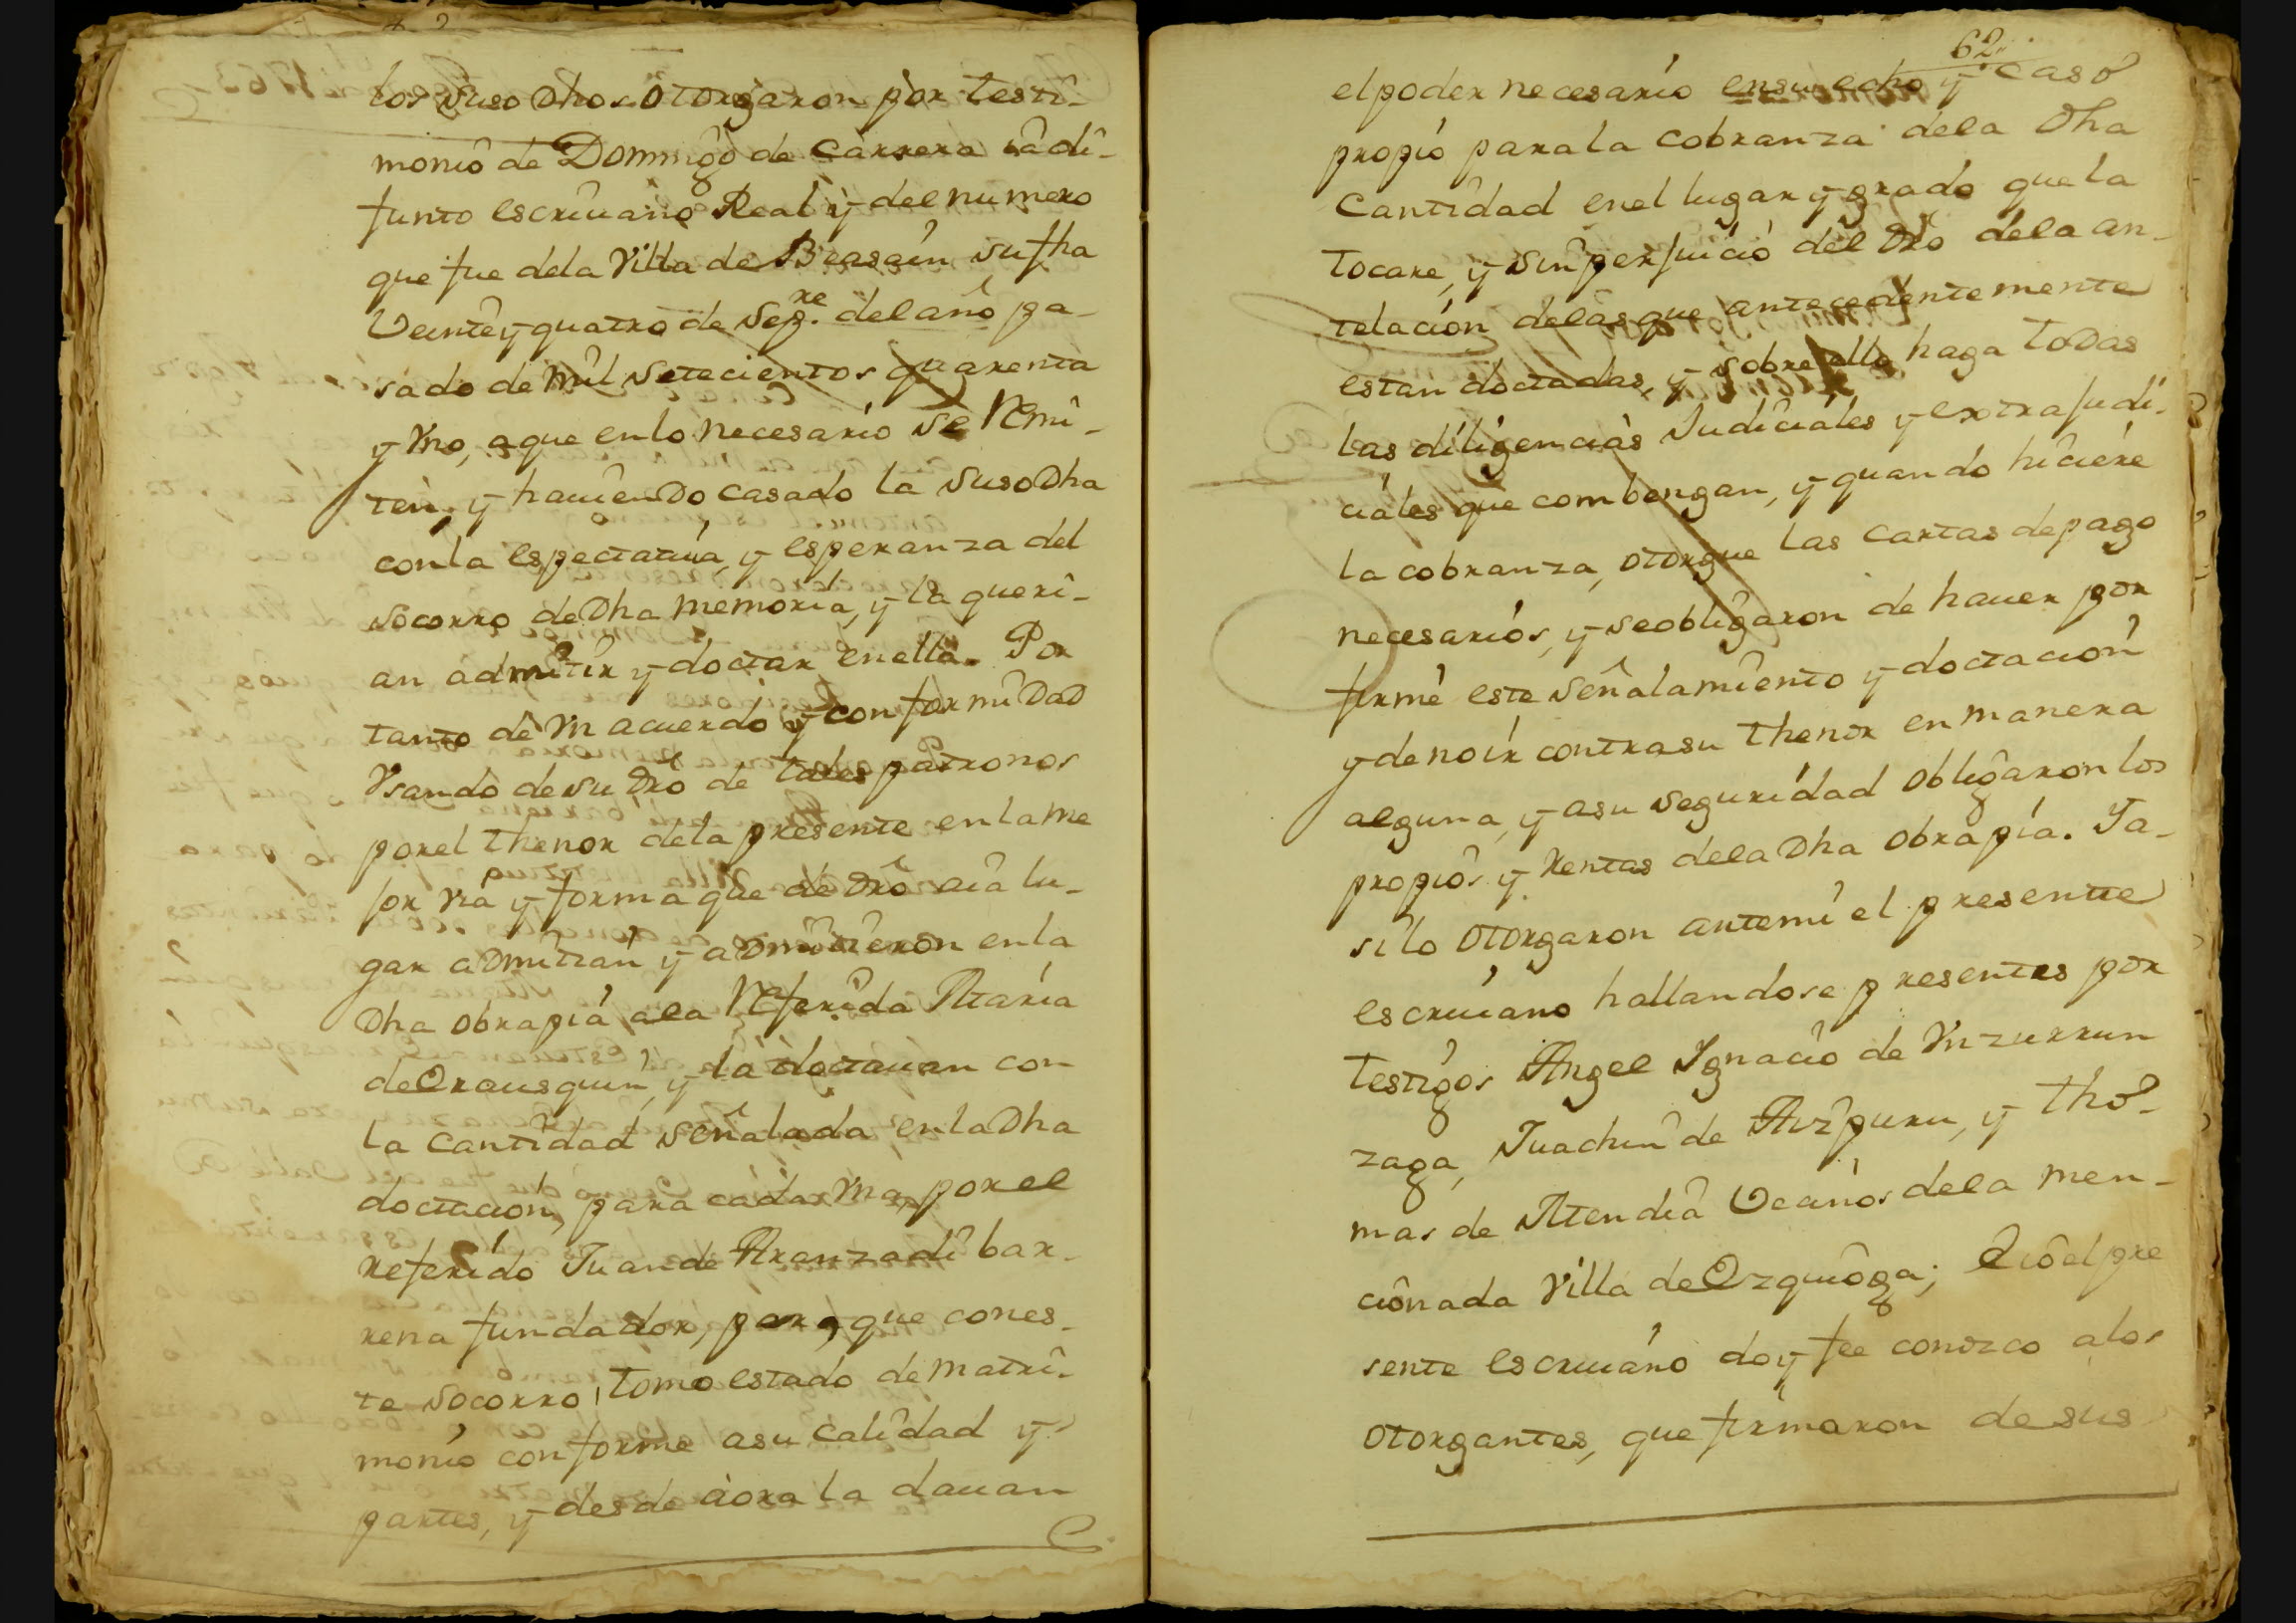 los suso dhos otorgaron por testi-
monio de Domingo de Carrera ia di-
funto escriuano Real y del numero
que fue dela Villa de Beasain su fha
Veinte y quatro de Sep.re del año pa-
sado de mil setecientos quarenta
y Vno, aque enlo necesario se Remi-
ten, y hauiendo casado la susodha
conla espectatiua, y esperanza del
socorro de dha memoria, y la queri-
an admitir y doctar enella. Por
tanto de Vn acuerdo y conformidad
Vsando de su dro de tales patronos
porel thenor dela presente enla me
jor via y forma que de dro aia lu-
gar admitian y admitieron enla
dha obrapia ala Referida Maria
de Orausquin, y la doctauan con
la cantidad señalada enla dha
doctacion, para cada Vna, por el
referido Juan de Aranzadi bar-
rena fundador, para que cones-
te socorro, tome estado de matri-
monio conforme asu calidad y
partes, y desde aora la dauan
62
el poder necesario ensu echo y caso
propio para la cobranza dela dha
cantidad enel lugar y grado que la
tocare, y sin perjuicio del dro dela an-
telacion delas que antecedentemente
estan doctadas, y sobre ello haga todas
las diligencias Judiciales y extrajudi-
ciales que combengan, y quando hiciere
la cobranza, otorgue las cartas de pago
necesarios, y se obligaron de hauer por
firme este señalamiento y doctacion
y de no ir contra su thenor en manera
alguna, y asu seguridad obligaron los
propios y Rentas dela dha obrapia. Ja-
si lo otorgaron antemi el presente
escriuano hallandose presentes por
testigos Angel Ignacio de Vnzurrun
zaga, Juachin de Aizpuru, y tho-
mas de Mendia Vecinos dela men-
cionada Villa de Ozquioga; E io el pre
sente escriuano doy fee conozco alos
otorgantes, que firmaron de sus